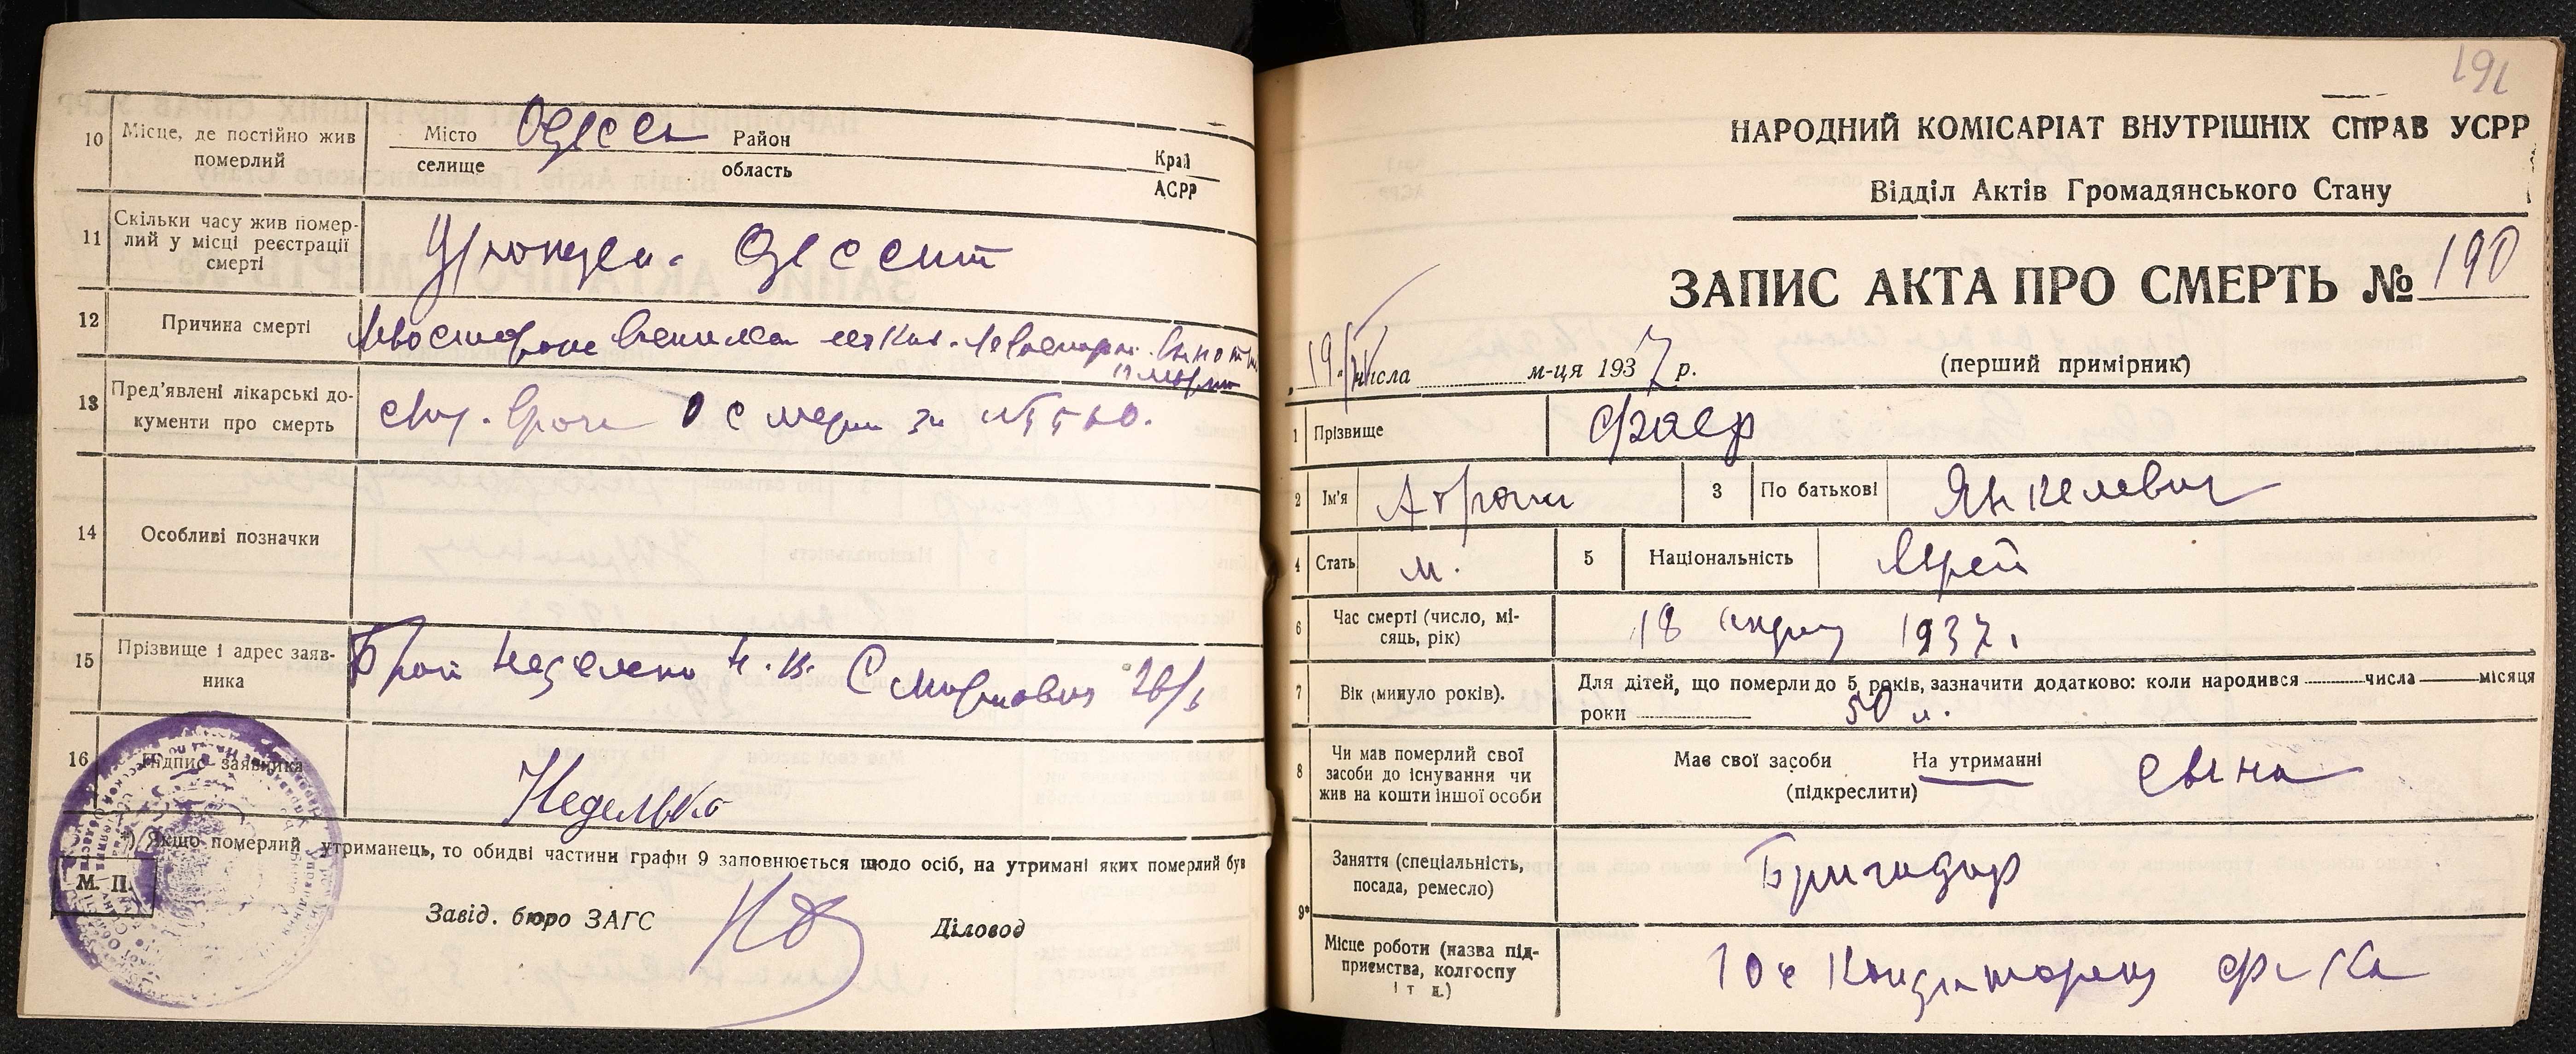 10 Місце, де постійно жив померлий
Місто Одесса Район Край
селище область АСРР
11 Скільки часу жив помер-
лий у місці реєстрації
смерті
Урожден. Одессит
12 Причина смерті
13 Пред'явлені лікарські до-
кументи про смерть
врача о смерти за
14 Особливі позначки
15 Прізвище і адрес заяв-
ника
16 Підпис заявника
Неделько
*) Якщо померлий утриманець, то обидві частини графи 9 заповнюється щодо осіб, на утримані яких померлий був
М. П.
Завід. бюро ЗАГС Діловод
191
НАРОДНИЙ КОМІСАРІАТ ВНУТРІШНІХ СПРАВ УСРР
Відділ Актів Громадянського Стану
ЗАПИС АКТА ПРО СМЕРТЬ № 190
19 числа м-ця 1937 р. (перший примірник)
1 Прізвище Фаер
2 Ім'я Абрам 3 По батькові Янкелевич
4 Стать м. 5 Національність Еврей
6 Час смерті (число, мі-
сяць, рік)
18 1937 г.
7 Вік (минуло років).
Для дітей, що померли до 5 років, зазначити додатково: коли народився числа місяця
роки 50 л.
8 Чи мав померлий свої
засоби до існування чи
жив на кошти іншої особи
Має свої засоби На утриманні
(підкреслити)
сына
9* Заняття (спеціальність,
посада, ремесло)
Бригадир
Місце роботи (назва під-
приємства, колгоспу
і т д.)
10е Кондиторск ф-ка